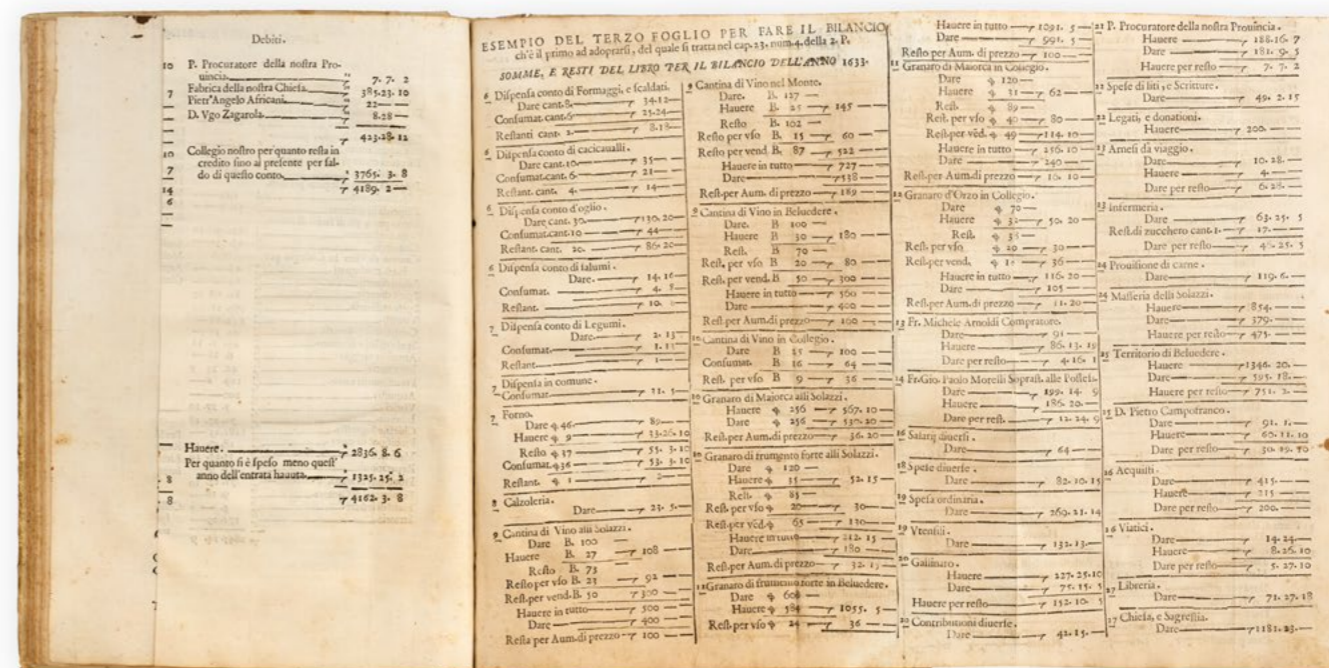 Debiti.
10 P. Procuratore della noſtra Pro-
uincia. 7. 7. 2
7 Fabrica della noſtra Chieſa. 385.23. 10
Pietr'Angelo Africani. 22
D. Vgo Zagarola. 8.28
423.28. 12
10 Collegio noſtro per quanto reſta in
credito ſino al preſente per ſal-
7 do di queſto conto. 3765. 3. 8
14 4189. 2
6
Hauere. 2836. 8. 6
Per quanto ſi è ſpeſo meno queſt'
8 anno dell'entrata hauuta. 1325. 25. 2
8 4162. 3. 8
ESEMPIO DEL TERZO FOGLIO PER FARE IL BILANCIO
ch'è il primo ad adoprarſi, del quale ſi tratta nel cap. 23. num. 4. della 2. P.
SOMME, E RESTI DEL LIBRO PER IL BILANCIO DELL'ANNO 1633.
6 Diſpenſa conto di Formaggi, e ſcaldati.
Dare cant. 8. 34.12
Conſumat. cant. 6 25.24
Reſtanti cant. 2. 8.18
6 Diſpenſa conto di cacicaualli.
Dare cant. 10. 35
Conſumat. cant. 6. 21
Reſtant. cant. 4. 14
6 Diſpenſa conto d'oglio.
Dare cant. 30. 130. 20
Conſumat. cant. 10 44
Reſtant. cant. 20. 86. 20
6 Diſpenſa conto di ſalumi.
Dare. 14. 16
Conſumat. 4. 8
Reſtant. 10. 8
7 Diſpenſa conto di Legumi.
Dare. 2. 15
Conſumat. 1. 15
Reſtant. 1
7 Diſpenſa in comune.
Conſumat. 11. 5
7 Forno.
Dare 46. 89
Hauere 9 33.26.10
Reſto 37 55. 3. 10
Conſumat. 36 53. 3. 10
Reſtant. 1 2
8 Calzoleria.
Dare 23. 5
9 Cantina di Vino alli Solazzi.
Dare B. 100
Hauere B. 27 108
Reſto B. 73
Reſto per vſo B. 23 92
Reſt. per vend. B. 50 300
Hauere in tutto 500
Dare 400
Reſta per Aum. di prezzo 100
9 Cantina di Vino nel Monte.
Dare. B. 127
Hauere B. 25 145
Reſto B. 102
Reſto per vſo B. 15 60
Reſto per vend. B. 87 522
Hauere in tutto 727
Dare 538
Reſt. per Aum. di prezzo 189
9 Cantina di Vino in Beluedere.
Dare. B 100
Hauere B 30 180
Reſt. B 70
Reſt. per vſo B 20 80
Reſt. per vend. B 50 300
Hauere in tutto 560
Dare 400
Reſt. per Aum. di prezzo 160
10 Cantina di Vino in Collegio.
Dare B 25 100
Conſumat. B 16 64
Reſt. per vſo B 9 36
10 Granaro di Maiorca alli Solazzi.
Hauere 256 567. 10
Dare 256 530. 20
Reſt. per Aum. di prezzo 36. 20
10 Granaro di frumento forte alli Solazzi.
Dare 120
Hauere 35 52. 15
Reſt. 85
Reſt. per vſo 20 30
Reſt. per vẽd. 65 130
Hauere in tutto 212. 15
Dare 180
Reſt. per Aum. di prezzo 32. 15
11 Granaro di frumento forte in Beluedere.
Dare 608
Hauere 584 1055. 5
Reſt. per vſo 24 36
Hauere in tutto 1091. 5
Dare 991. 5
Reſto per Aum. di prezzo 100
11 Granaro di Maiorca in Collegio.
Dare 120
Hauere 31 62
Reſt. 89
Reſt. per vſo 40 80
Reſt. per vẽd. 49 114. 10
Hauere in tutto 256. 10
Dare 240
Reſt. per Aum. di prezzo 16. 10
12 Granaro d'Orzo in Collegio.
Dare 70
Hauere 32 50. 20
Reſt. 38
Reſt. per vſo 20 30
Reſt. per vend. 18 36
Hauere in tutto 116. 20
Dare 105
Reſt. per Aum. di prezzo 11. 20
13 Fr. Michele Arnoldi Compratore.
Dare 91
Hauere 86. 13. 19
Dare per reſto 4. 16. 1
14 Fr. Gio. Paolo Morelli Sopraſt. alle Poſſeſs.
Dare 199. 14. 9
Hauere 186. 20.
Dare per reſt. 12. 24. 9
16 Salarij diuerſi.
Dare 64
18 Speſe diuerſe.
Dare 82. 10. 15
19 Speſa ordinaria.
Dare 269. 21. 14
19 Vtenſili.
Dare 132. 13.
20 Gallinaro.
Hauere 227. 25. 10
Dare 75. 15. 5
Hauere per reſto 152. 10. 5
20 Contributioni diuerſe.
Dare 42. 15.
21 P. Procuratore della noſtra Prouincia.
Hauere 188. 16. 7
Dare 181. 9. 5
Hauere per reſto 7. 7. 2
22 Speſe di liti, e Scritture.
Dare 49. 2. 15
22 Legati, e donationi.
Hauere 200.
23 Arneſi da viaggio.
Dare 10. 28.
Hauere 4.
Dare per reſto 6. 28.
23 Infermeria.
Dare 63. 25. 5
Reſt. di zucchero cant. 1. 17.
Dare per reſto 46. 25. 5
24 Prouiſione di carne.
Dare 119. 6.
24 Maſſeria delli Solazzi.
Hauere 854.
Dare 379.
Hauere per reſto 475.
25 Territorio di Beluedere.
Hauere 1346. 20.
Dare 595. 18.
Hauere per reſto 751. 2.
25 D. Pietro Campofranco.
Dare 91. 1.
Hauere 60. 11. 10
Dare per reſto 30. 19. 10
26 Acquiſti.
Dare 415.
Hauere 215
Dare per reſto 200.
26 Viatici.
Dare 14. 24.
Hauere 8. 26. 10
Dare per reſto 5. 27. 10
27 Libreria.
Dare 71. 27. 18
27 Chieſa, e Sagreſtia.
Dare 1181. 23.